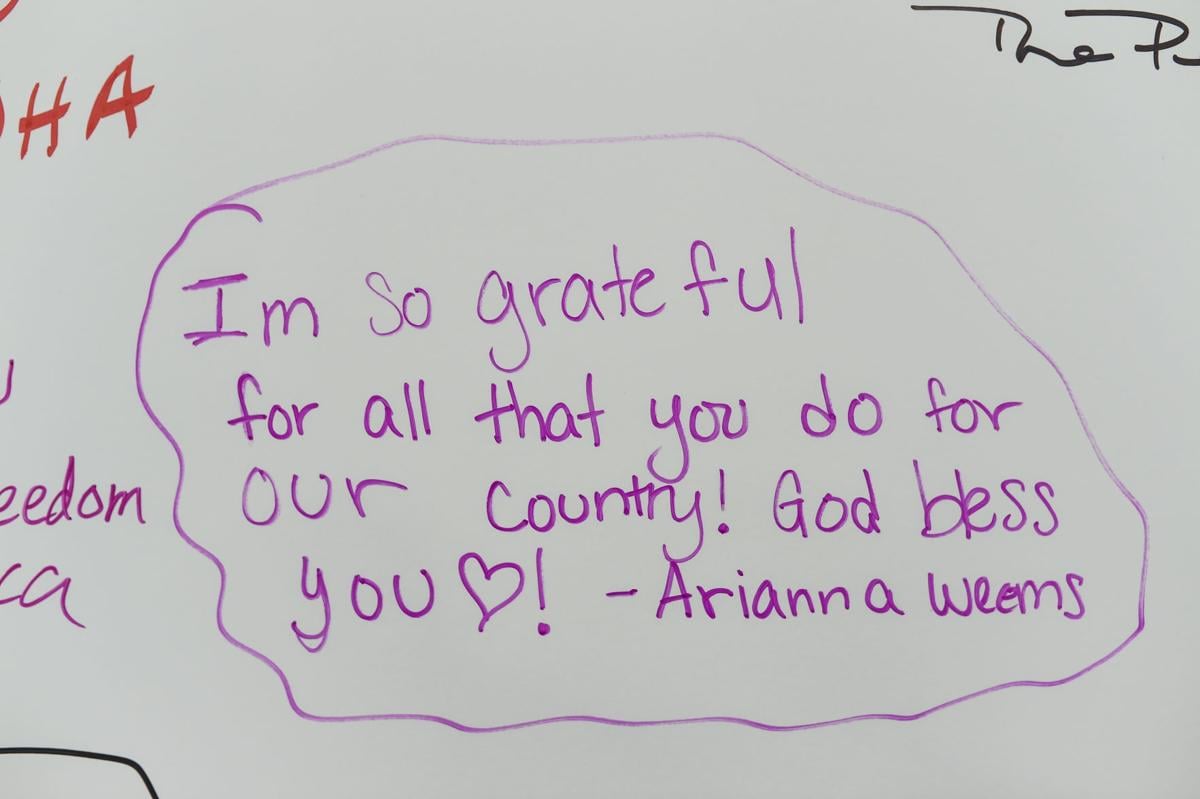 The
HA
Im so grateful
for all that you do for
our country! God bless
you♡! - Arianna Weems